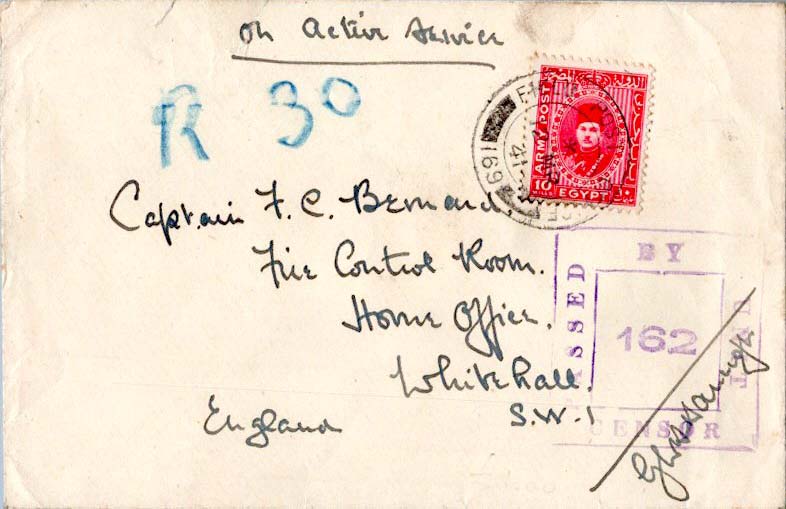 on Active Service
R 30
ARMY POST
10 MILLS EGYPT
169
41
Captain F. C. Bernard.
Fire Control Room.
Home Office.
Whitehall.
S.W.1
England
PASSED BY
162
CENSOR